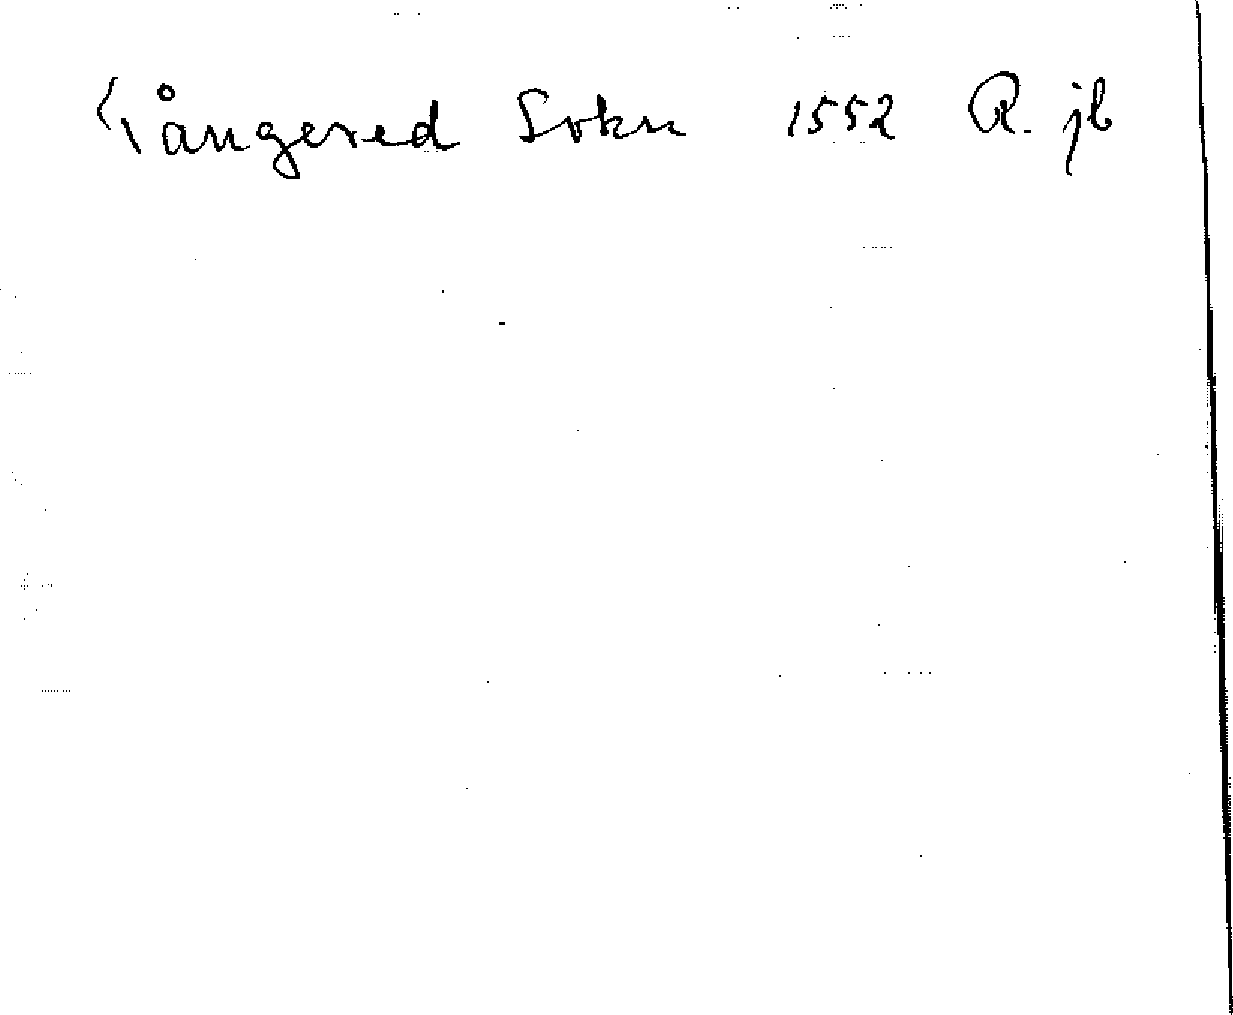 Tångered Sokn 1552 R. jb